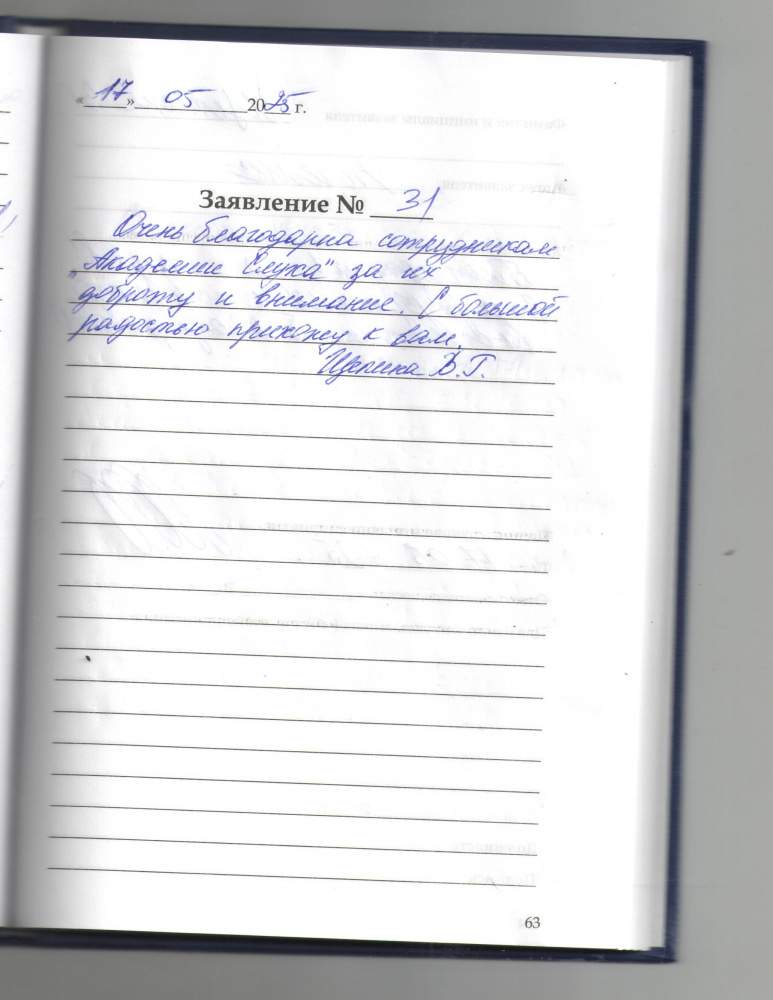 «17» 05 2025 г.
Заявление № 31
Очень благодарна сотрудникам
„Академии Слуха" за их
доброту и внимание. С большой
радостью прихожу к вам.
В.Г.
63